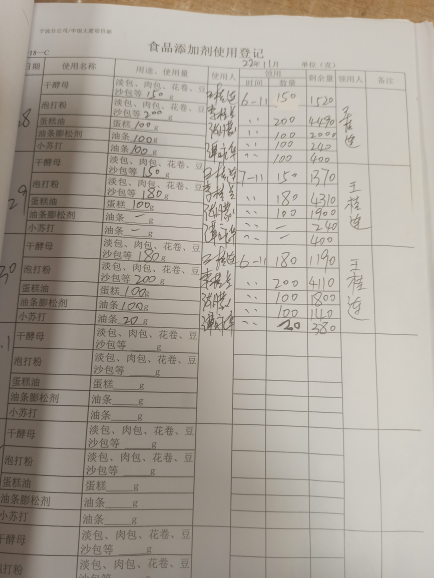 食品添加剂使用登记
22年11月 单位（克）
日期 使用名称 用途、使用量 使用人 领用 时间 数量 剩余量 领用人 备注
8 干酵母 淡包、肉包、花卷、豆沙包等150g 6-11 150 1520
泡打粉 淡包、肉包、花卷、豆沙包等200g 200 4490
蛋糕油 蛋糕100g 100 2000
油条膨松剂 油条100g 100 240
小苏打 油条100g 100 400
29 干酵母 淡包、肉包、花卷、豆沙包等150g 7-11 150 1370
泡打粉 淡包、肉包、花卷、豆沙包等180g 180 4310
蛋糕油 蛋糕100g 100 1900
油条膨松剂 油条—g — 240
小苏打 油条—g — 400
30 干酵母 淡包、肉包、花卷、豆沙包等180g 6-11 180 1190
泡打粉 淡包、肉包、花卷、豆沙包等200g 200 4110
蛋糕油 蛋糕100g 100 1800
油条膨松剂 油条100g 100 140
小苏打 油条20g 20 380
干酵母 淡包、肉包、花卷、豆沙包等 g
泡打粉 淡包、肉包、花卷、豆沙包等 g
蛋糕油 蛋糕 g
油条膨松剂 油条 g
小苏打 油条 g
干酵母 淡包、肉包、花卷、豆沙包等 g
泡打粉 淡包、肉包、花卷、豆沙包等 g
蛋糕油 蛋糕 g
油条膨松剂 油条 g
小苏打 油条 g
干酵母 淡包、肉包、花卷、豆沙包等 g
泡打粉 淡包、肉包、花卷、豆